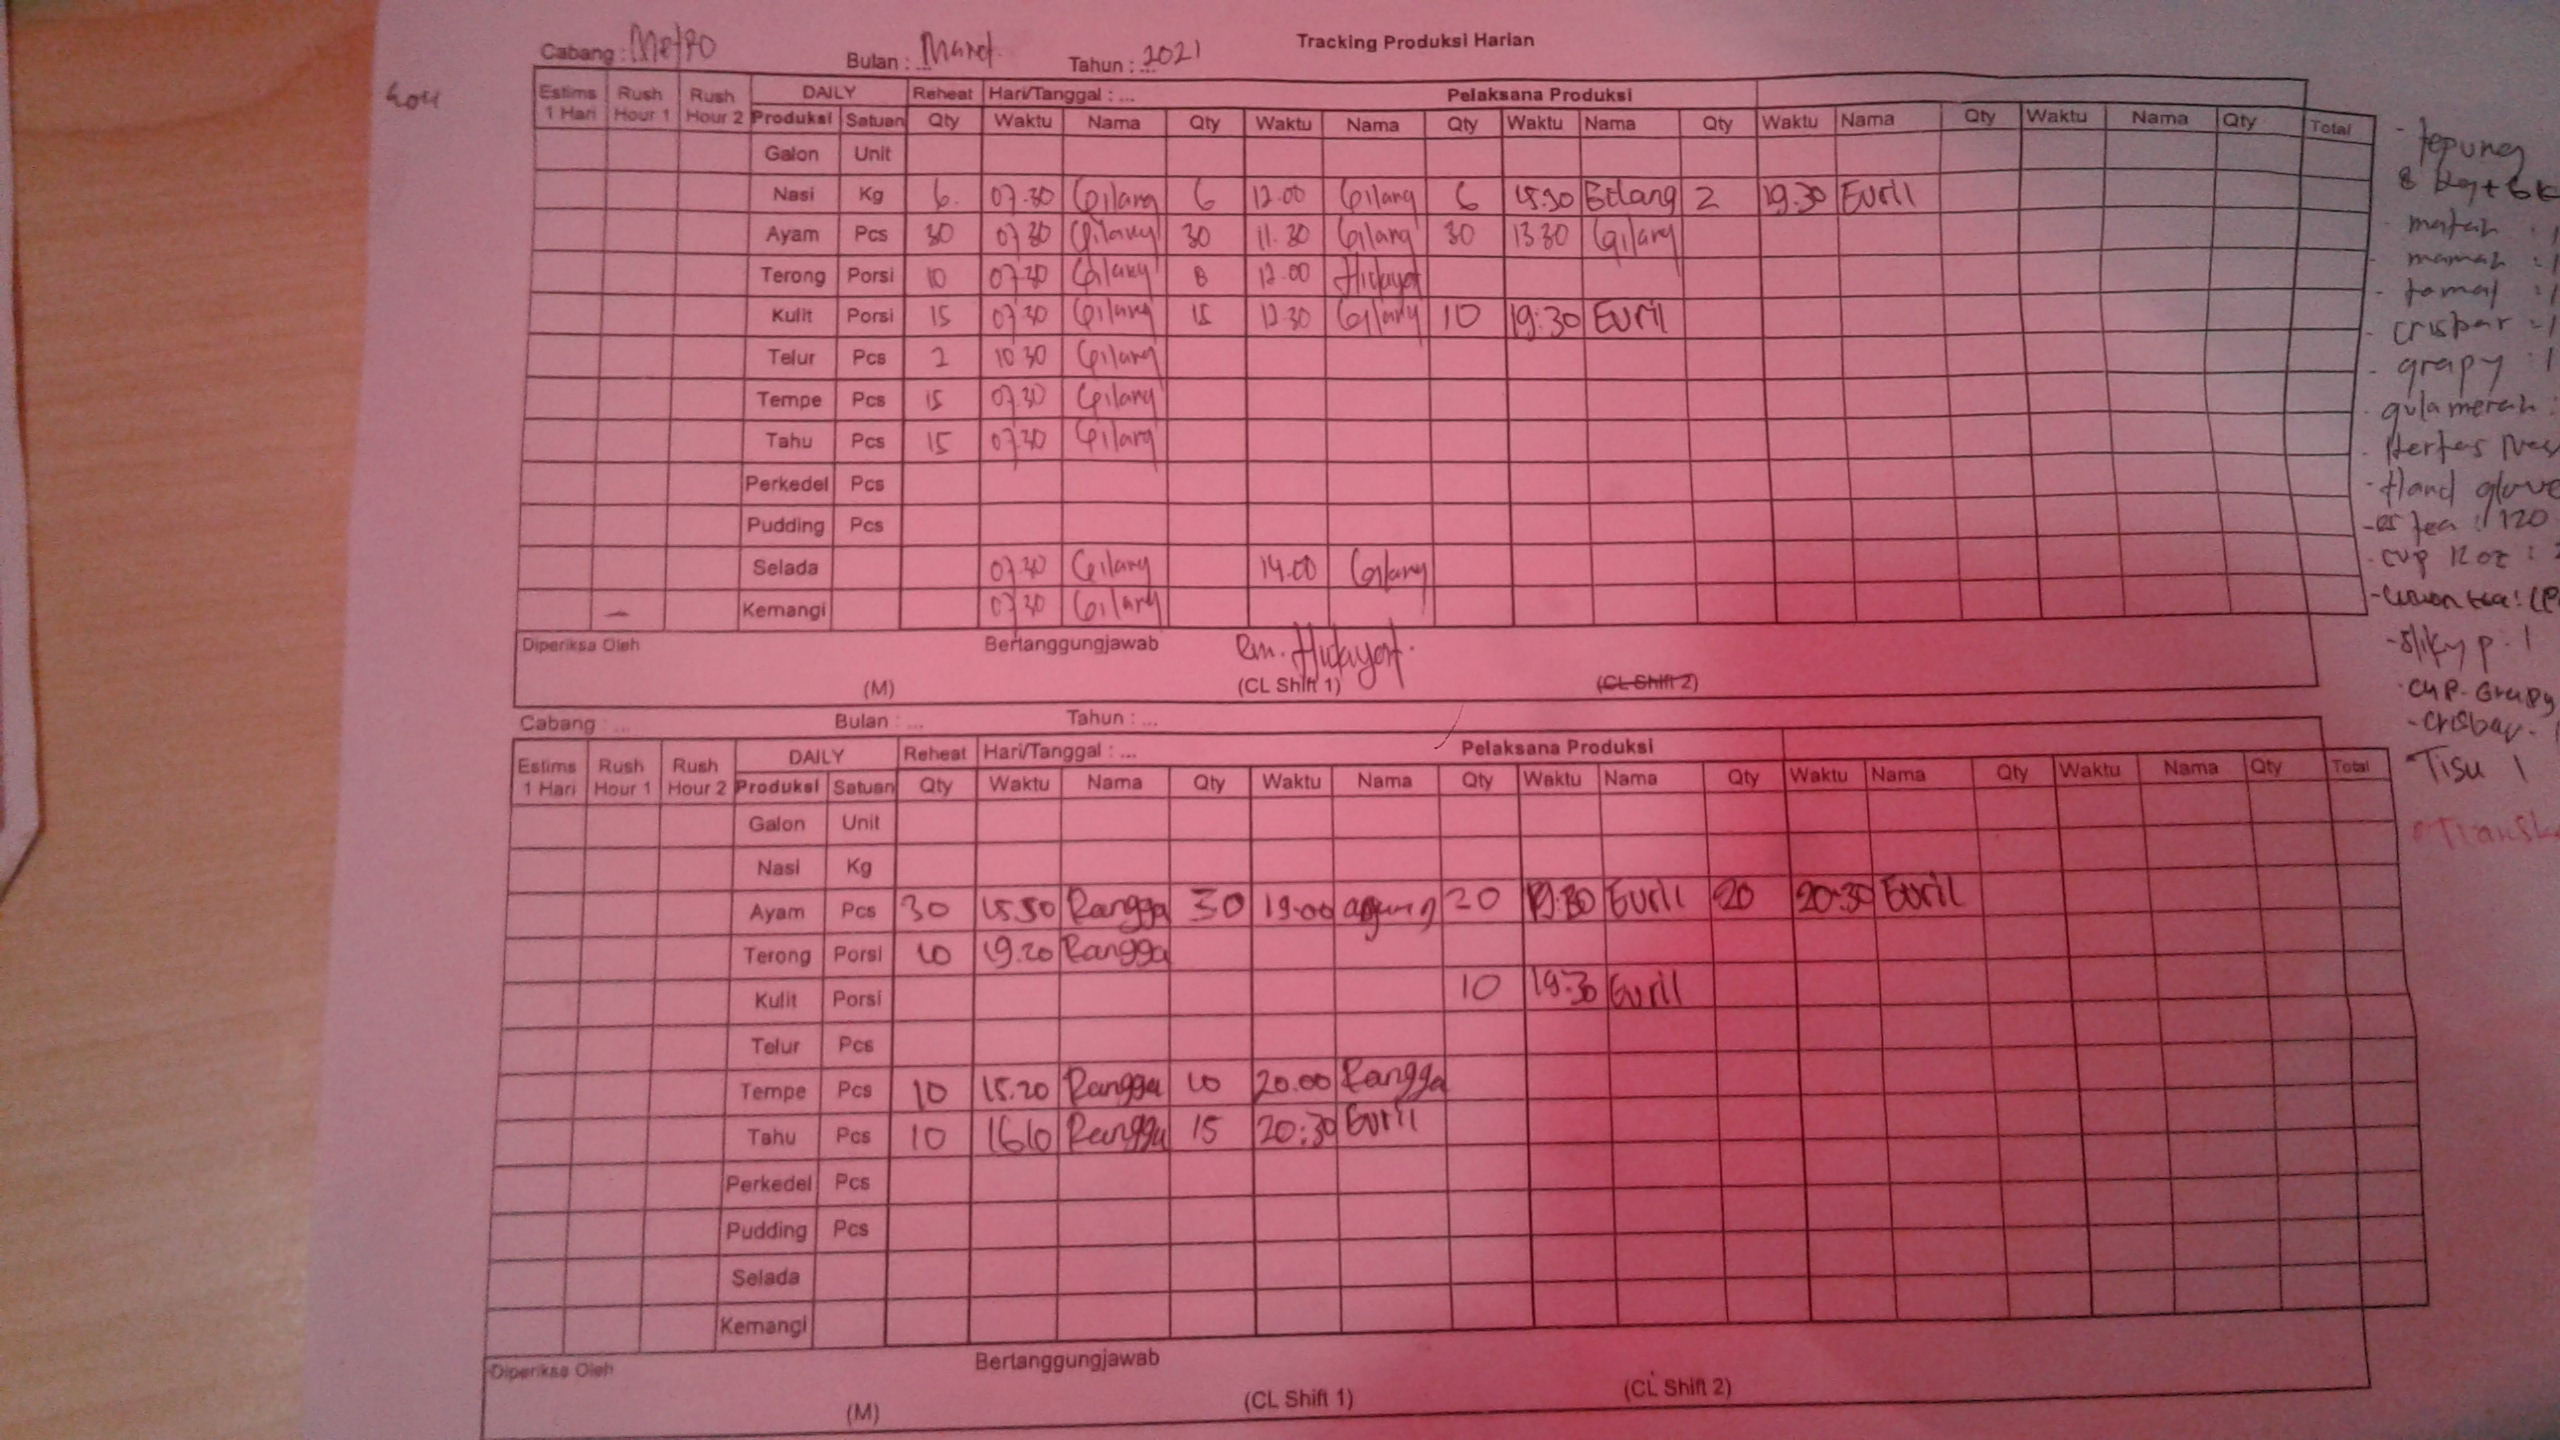 Tracking Produksi Harian
Cabang : Metro Bulan : Maret Tahun : 2021
Estims Rush Rush DAILY Reheat Hari/Tanggal : ... Pelaksana Produksi
1 Hari Hour 1 Hour 2 Produksi Satuan Qty Waktu Nama Qty Waktu Nama Qty Waktu Nama Qty Waktu Nama Qty Waktu Nama Qty Total
Galon Unit
Nasi Kg 6 07.30 Gilang 6 12.00 Gilang 6 15:30 Gilang 2 19.30 Euril
Ayam Pcs 30 07.30 Gilang 30 11.30 Gilang 30 13 30 Gilang
Terong Porsi 10 07.30 Gilang 8 12.00 Hidayat
Kulit Porsi 15 07.30 Gilang 15 12.30 Gilang 10 19:30 Euril
Telur Pcs 2 10 30 Gilang
Tempe Pcs 15 07.30 Gilang
Tahu Pcs 15 07.30 Gilang
Perkedel Pcs
Pudding Pcs
Selada 07.30 Gilang 14.00 Gilang
Kemangi 07.30 Gilang
Diperiksa Oleh Bertanggungjawab
Hidayat
(M) (CL Shift 1) (CL Shift 2)
Cabang : ... Bulan : ... Tahun : ...
Estims Rush Rush DAILY Reheat Hari/Tanggal : ... Pelaksana Produksi
1 Hari Hour 1 Hour 2 Produksi Satuan Qty Waktu Nama Qty Waktu Nama Qty Waktu Nama Qty Waktu Nama Qty Waktu Nama Qty Total
Galon Unit
Nasi Kg
Ayam Pcs 30 15.50 Rangga 30 19:00 agung 20 19:30 Euril 20 20:30 Euril
Terong Porsi 10 19.20 Rangga
Kulit Porsi 10 19:30 Euril
Telur Pcs
Tempe Pcs 10 15.20 Rangga 10 20.00 Rangga
Tahu Pcs 10 16.10 Rangga 15 20:30 Euril
Perkedel Pcs
Pudding Pcs
Selada
Kemangi
Diperiksa Oleh Bertanggungjawab
(M) (CL Shift 1) (CL Shift 2)
- tepung
8 kg + 6k
- matah : 1
- tomat : 1
- crisbar : 1
- grapy : 1
- gulamerah :
- Hand glove
- es tea : 120
- cup 12 oz :
- cup. Grapy
- crisbar.
- Tisu 1